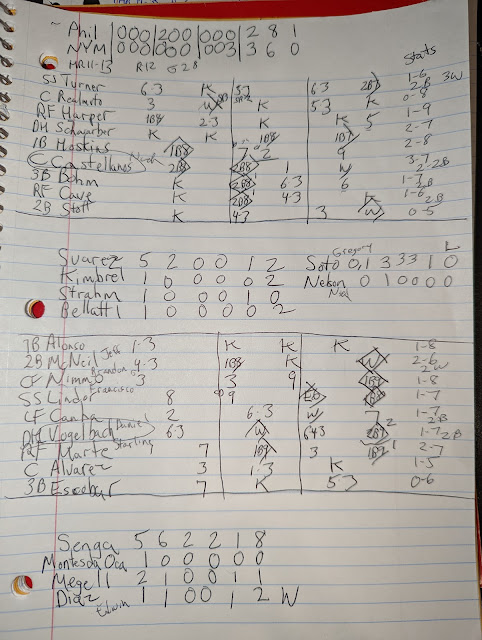 ~ Phil 000 200 000 2 8 1
NYM 000 000 003 3 6 0
MR 11-13 R12 G28 Stats
SS Turner 6-3 K 5-3 63 2B7 1-6 2B 3W
C Realmuto 3 W K 53 K 0-8
RF Harper 1B8 2-3 K K 5 1-9
DH Schwarber K K 1B8 1B7 2-7
1B Hoskins 1B8 7 2 9 2-8
C Castellanos Nick 2B8 2B8 1 W 3-7 2-2B
3B Bohm K 2B8 6-3 6 1-7 2B
RF Cave K 2B8 4-3 K 1-6 2B
2B Stott K 43 3 W 0-5
Suarez 5 2 0 0 1 2 Gregory Soto 0.1 3 3 3 1 0 L
Kimbrel 1 0 0 0 0 2 Nelson Nick 0 1 0 0 0 0
Strahm 1 0 0 0 1 0
Bellatti 1 0 0 0 0 2
1B Alonso 1-3 K K K 1-8
2B McNeil Jeff 4-3 1B8 K W 2-6 2W
CF Nimmo Brandon 3 3 9 1B7 1-8
SS Lindor Francisco 8 9 E6 1B7 1-7
LF Canha 2 6-3 W 7 1-7 2B
DH Vogelbach Daniel 63 W 643 2B7 1-7 2B
RF Marte Starling 7 1B7 3 1B7 2-7
C Alvarez 3 1-3 K 1-5
3B Escobar 7 K 53 0-6
Senga 5 6 2 2 1 8
Montesdeoca 1 0 0 0 0 0
Megill 2 1 0 0 1 1
Diaz Edwin 1 1 0 0 1 2 W